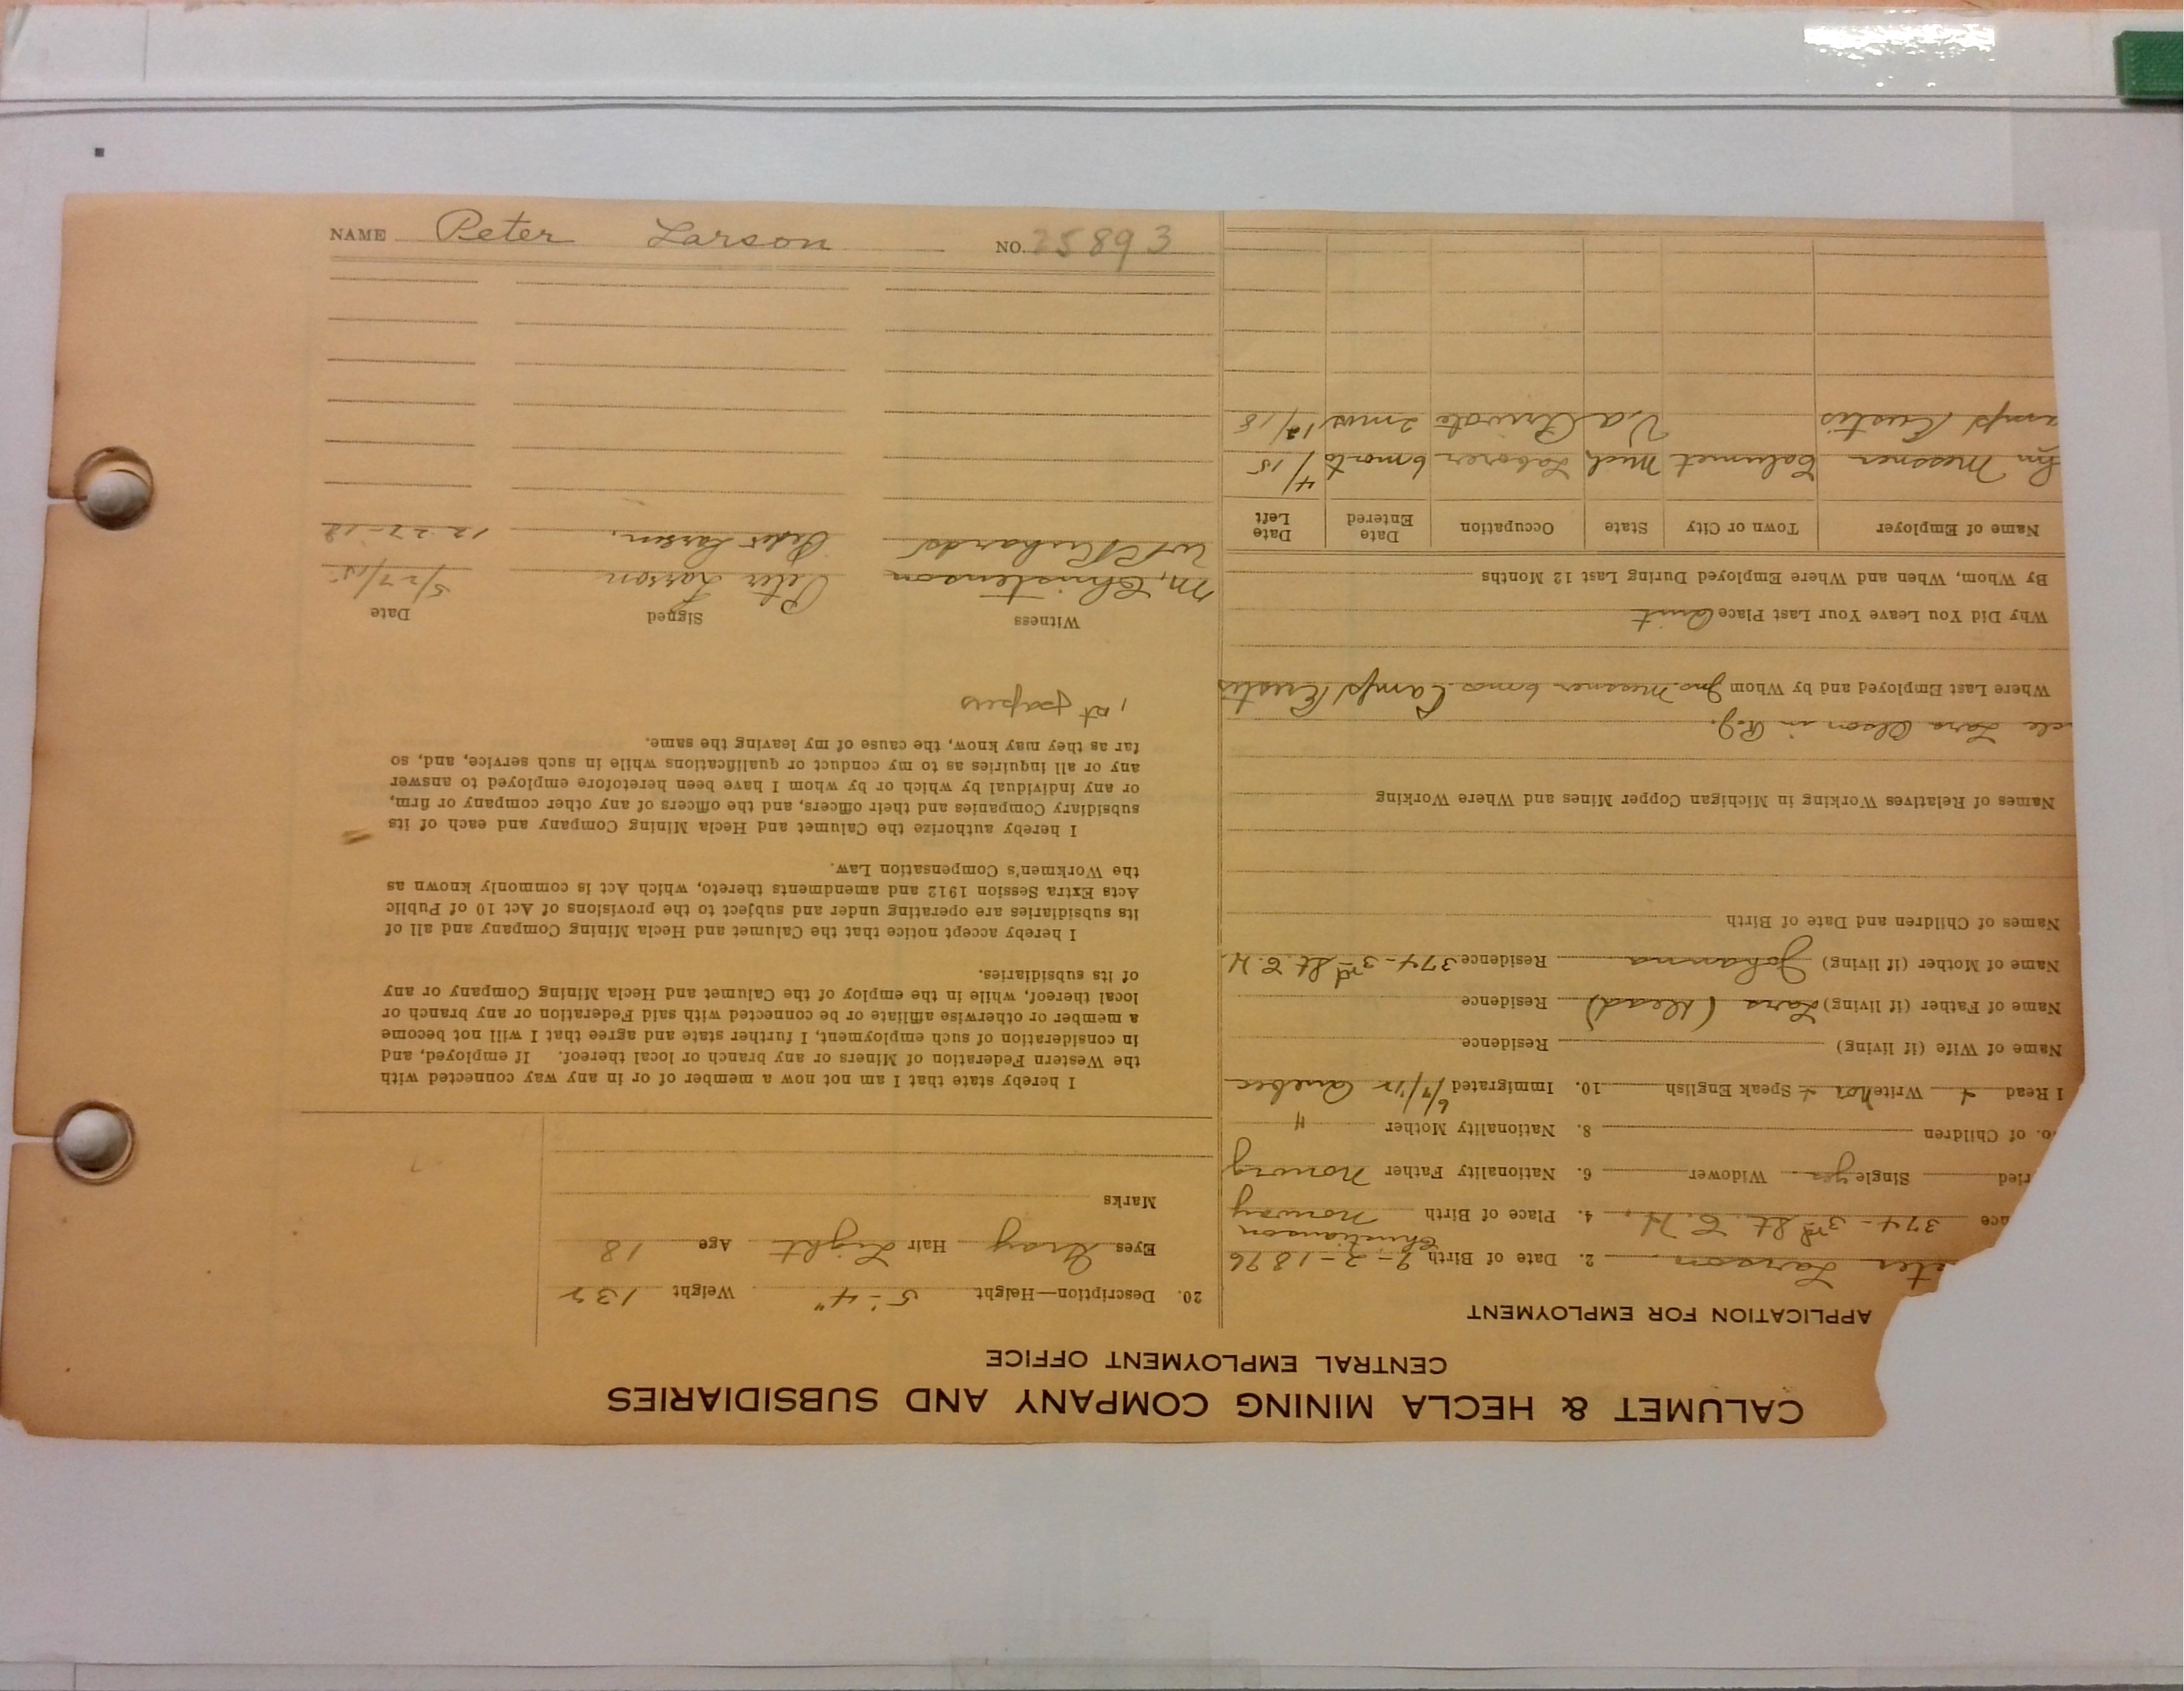 CALUMET & HECLA MINING COMPANY AND SUBSIDIARIES
CENTRAL EMPLOYMENT OFFICE
APPLICATION FOR EMPLOYMENT
eter Larson 2. Date of Birth 9-2-1896
ace 374-3rd St. C.H. 4. Place of Birth Christianson Norway
ried Single yes Widower 6. Nationality Father Norway
o. of Children 8. Nationality Mother "
I Read Write Nor Speak English 10. Immigrated Quebec
Name of Wife (if living) Residence
Name of Father (if living) Lars (Dead) Residence
Name of Mother (if living) Johanna Residence 374-3rd St. C.H.
Names of Children and Date of Birth
Names of Relatives Working in Michigan Copper Mines and Where Working
cle Lars Olson in R.J.
Where Last Employed and by Whom Jno. Messner 6 mos. Camp Eustis
Why Did You Leave Your Last Place Quit
By Whom, When and Where Employed During Last 12 Months
Name of Employer Town or City State Occupation Date Entered Date Left
Messner Calumet Mich Laborer 6 months 4/15
amp Eustis Va Private 2 mos 12/18
20. Description—Height 5'-4" Weight 135
Eyes Gray Hair Light Age 18
Marks
I hereby state that I am not now a member of or in any way connected with
the Western Federation of Miners or any branch or local thereof. If employed, and
in consideration of such employment, I further state and agree that I will not become
a member or otherwise affiliate or be connected with said Federation or any branch or
local thereof, while in the employ of the Calumet and Hecla Mining Company or any
of its subsidiaries.
I hereby accept notice that the Calumet and Hecla Mining Company and all of
its subsidiaries are operating under and subject to the provisions of Act 10 of Public
Acts Extra Session 1912 and amendments thereto, which Act is commonly known as
the Workmen's Compensation Law.
I hereby authorize the Calumet and Hecla Mining Company and each of its
subsidiary Companies and their officers, and the officers of any other company or firm,
or any individual by which or by whom I have been heretofore employed to answer
any or all inquiries as to my conduct or qualifications while in such service, and, so
far as they may know, the cause of my leaving the same.
1st papers
Witness Signed Date
M. Christenson Peter Larson 5/27/15
W Richards Peder Larsen. 12-27-18
NAME Peter Larson NO. 25893